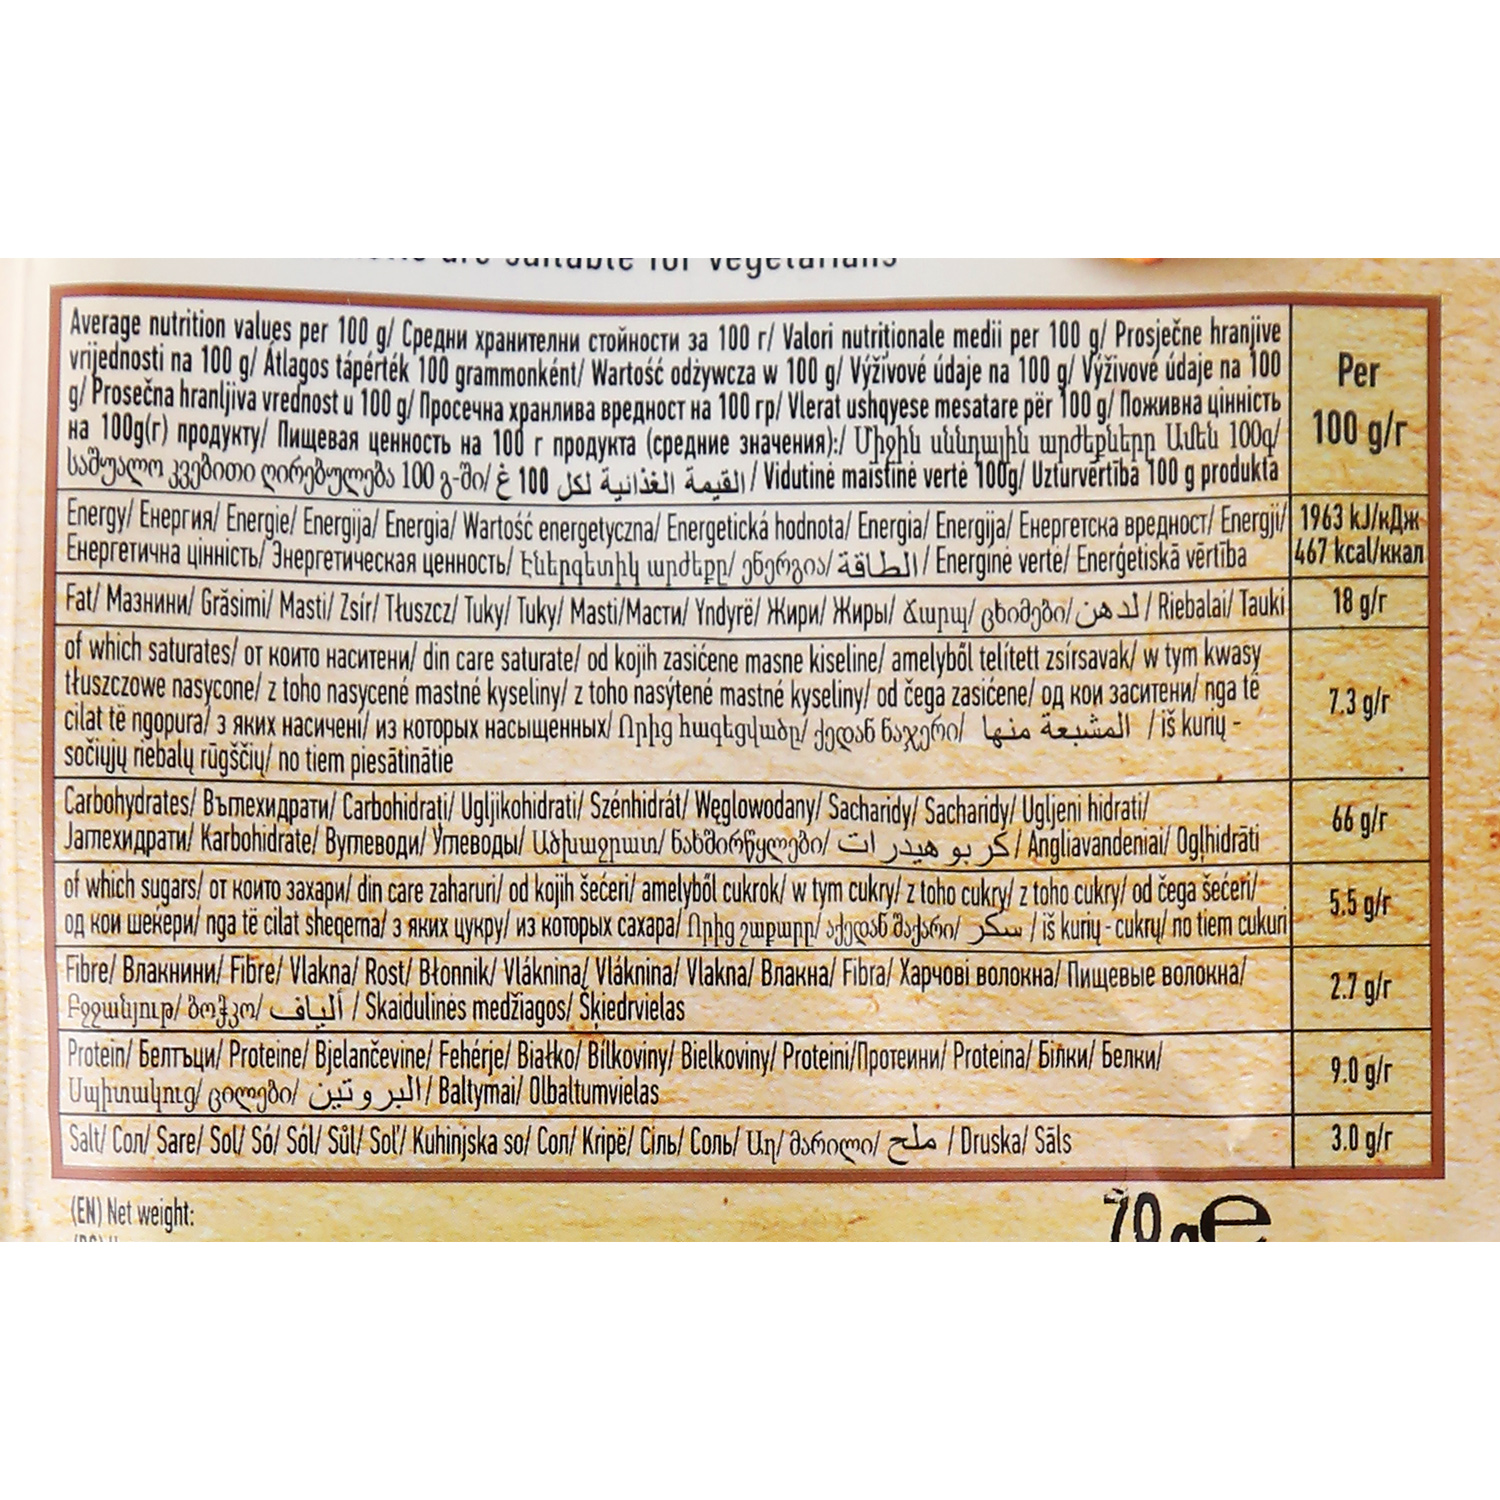 suitable for vegetarians
Average nutrition values per 100 g/ Средни хранителни стойности за 100 г/ Valori nutriționale medii per 100 g/ Prosječne hranjive
vrijednosti na 100 g/ Átlagos tápérték 100 grammonként/ Wartość odżywcza w 100 g/ Výživové údaje na 100 g/ Výživové údaje na 100
g/ Prosečna hranljiva vrednost u 100 g/ Просечна хранлива вредност на 100 гр/ Vlerat ushqyese mesatare për 100 g/ Поживна цінність
на 100g(г) продукту/ Пищевая ценность на 100 г продукта (средние значения):/ Միջին սննդային արժեքները Ամեն 100գ/
საშუალო კვებითი ღირებულება 100 გ-ში/ القيمة الغذائية لكل 100 غ / Vidutinė maistinė vertė 100g/ Uzturvērtība 100 g produkta
Per
100 g/г
Energy/ Енергия/ Energie/ Energija/ Energia/ Wartość energetyczna/ Energetická hodnota/ Energia/ Energija/ Енергетска вредност/ Energji/
Енергетична цінність/ Энергетическая ценность/ Էներգետիկ արժեքը/ ენერგია/ الطاقة / Energinė vertė/ Enerģētiskā vērtība
1963 kJ/кДж
467 kcal/ккал
Fat/ Мазнини/ Grăsimi/ Masti/ Zsír/ Tłuszcz/ Tuky/ Tuky/ Masti/Масти/ Yndyrë/ Жири/ Жиры/ Ճարպ/ ცხიმები/ لدهن / Riebalai/ Tauki
18 g/г
of which saturates/ от които наситени/ din care saturate/ od kojih zasićene masne kiseline/ amelyből telített zsírsavak/ w tym kwasy
tłuszczowe nasycone/ z toho nasycené mastné kyseliny/ z toho nasýtené mastné kyseliny/ od čega zasićene/ од кои заситени/ nga të
cilat të ngopura/ з яких насичені/ из которых насыщенных/ Որից հագեցվածը/ ქედან ნაჯერი/ المشبعة منها / iš kurių -
sočiųjų riebalų rūgščių/ no tiem piesātinātie
7.3 g/г
Carbohydrates/ Въглехидрати/ Carbohidrați/ Ugljikohidrati/ Szénhidrát/ Węglowodany/ Sacharidy/ Sacharidy/ Ugljeni hidrati/
Јаглехидрати/ Karbohidrate/ Вуглеводи/ Углеводы/ Ածխաջրատ/ ნახშირწყლები/ كربو هيدرات / Angliavandeniai/ Ogļhidrāti
66 g/г
of which sugars/ от които захари/ din care zaharuri/ od kojih šećeri/ amelyből cukrok/ w tym cukry/ z toho cukry/ z toho cukry/ od čega šećeri/
од кои шеќери/ nga të cilat sheqerna/ з яких цукру/ из которых сахара/ Որից շաքարը/ აქედან შაქარი/ سكر / iš kurių - cukrų/ no tiem cukuri
5.5 g/г
Fibre/ Влакнини/ Fibre/ Vlakna/ Rost/ Błonnik/ Vláknina/ Vláknina/ Vlakna/ Влакна/ Fibra/ Харчові волокна/ Пищевые волокна/
Բջջանյութ/ ბოჭკო/ ألياف / Skaidulinės medžiagos/ Šķiedrvielas
2.7 g/г
Protein/ Белтъци/ Proteine/ Bjelančevine/ Fehérje/ Białko/ Bílkoviny/ Bielkoviny/ Proteini/Протеини/ Proteina/ Білки/ Белки/
Սպիտակուց/ ცილები/ البروتين / Baltymai/ Olbaltumvielas
9.0 g/г
Salt/ Сол/ Sare/ Sol/ Só/ Sól/ Sůl/ Soľ/ Kuhinjska so/ Сол/ Kripë/ Сіль/ Соль/ Աղ/ მარილი/ ملح / Druska/ Sāls
3.0 g/г
(EN) Net weight:
70 g℮